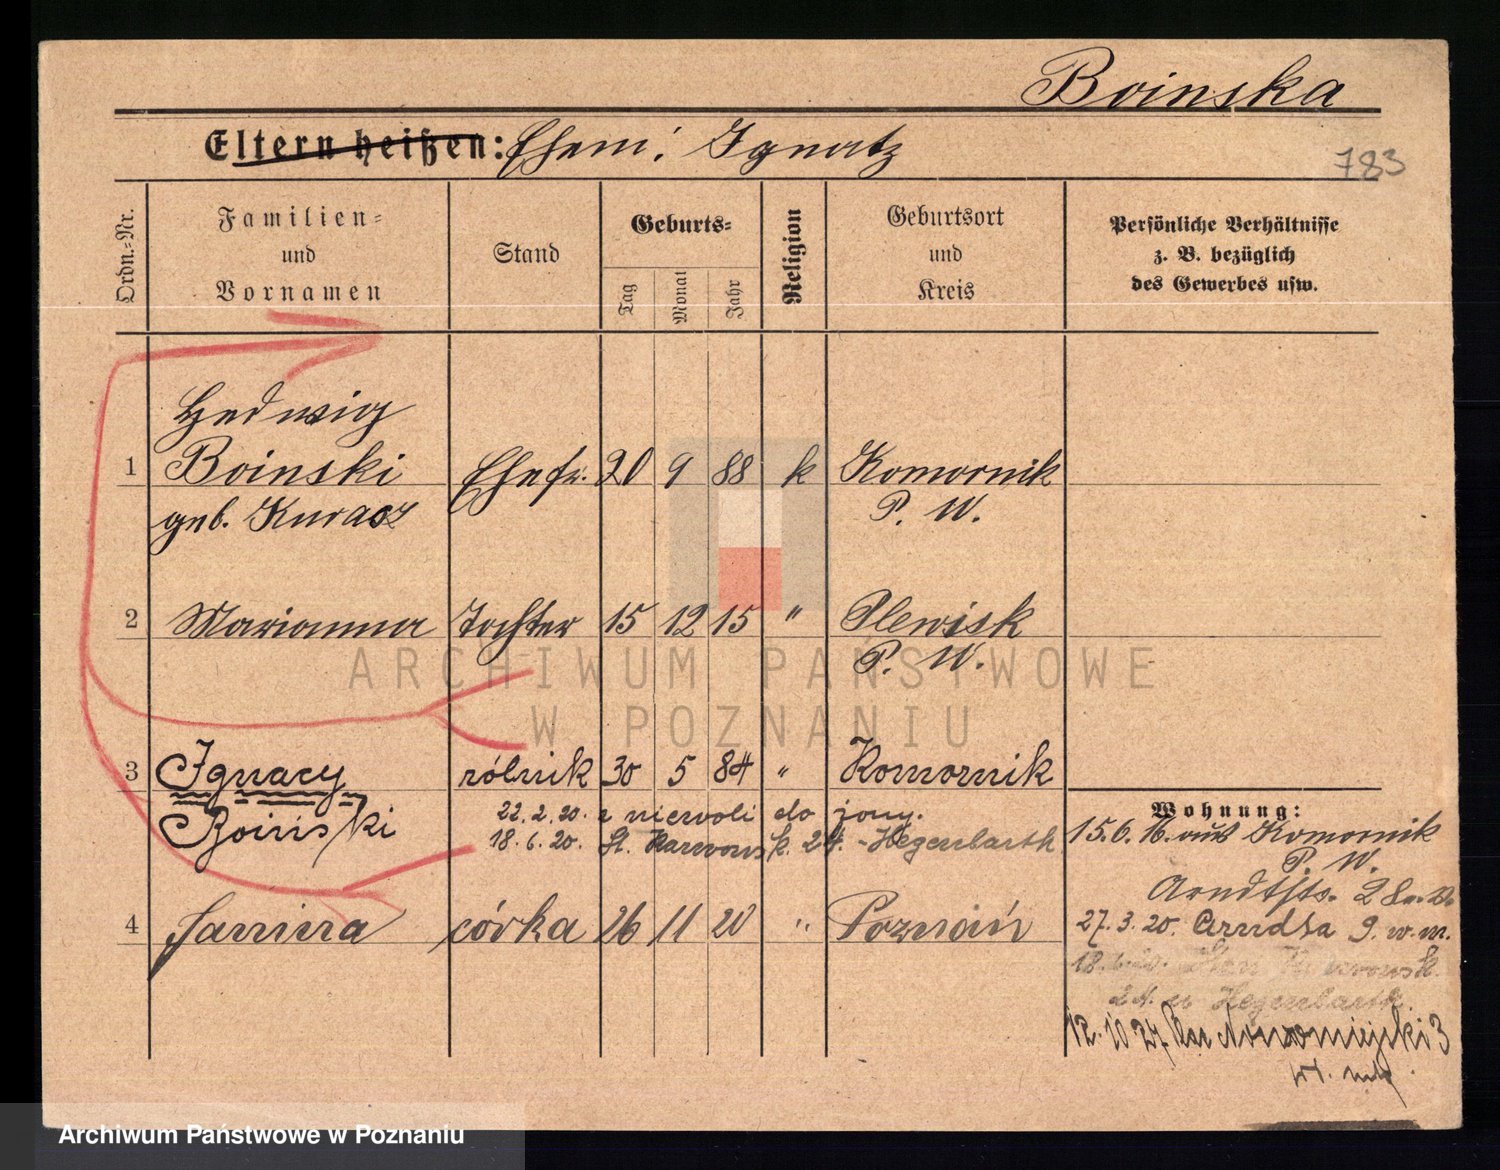 Boinska
Eltern heißen: Ehem: Ignatz
783
Ordn.=Nr.
Familien=
und
Vornamen
Stand
Geburts=
Tag
Monat
Jahr
Religion
Geburtsort
und
Kreis
Persönliche Verhältnisse
z. B. bezüglich
des Gewerbes usw.
Hedwig
1 Boinski Ehefr. 20 9 88 k Komornik
geb. Kuracz P. W.
2 Marianna Tochter 15 12 15 " Plewisk
P. W.
ARCHIWUM PAŃSTWOWE
W POZNANIU
3 Ignacy rólnik 30 5 84 " Komornik
Boiński
22.2.20. z niewoli do żony.
18.6.20. St. Karwowsk. 24. - Hegenbarth
4 Janina córka 26 11 20 " Poznań
Wohnung:
15.6.16. aus Komornik
P. W.
Arndtstr. 28
27.3.20. Arndta 9. w. m.
18. Karwowsk.
24. u Hegenbarth.
12.10 27 Nowomiejski 3
Archiwum Państwowe w Poznaniu